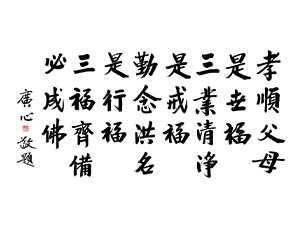 孝順父母
是世福
三業清淨
是戒福
勤念洪名
是行福
三福齊備
必成佛
廣心敬題